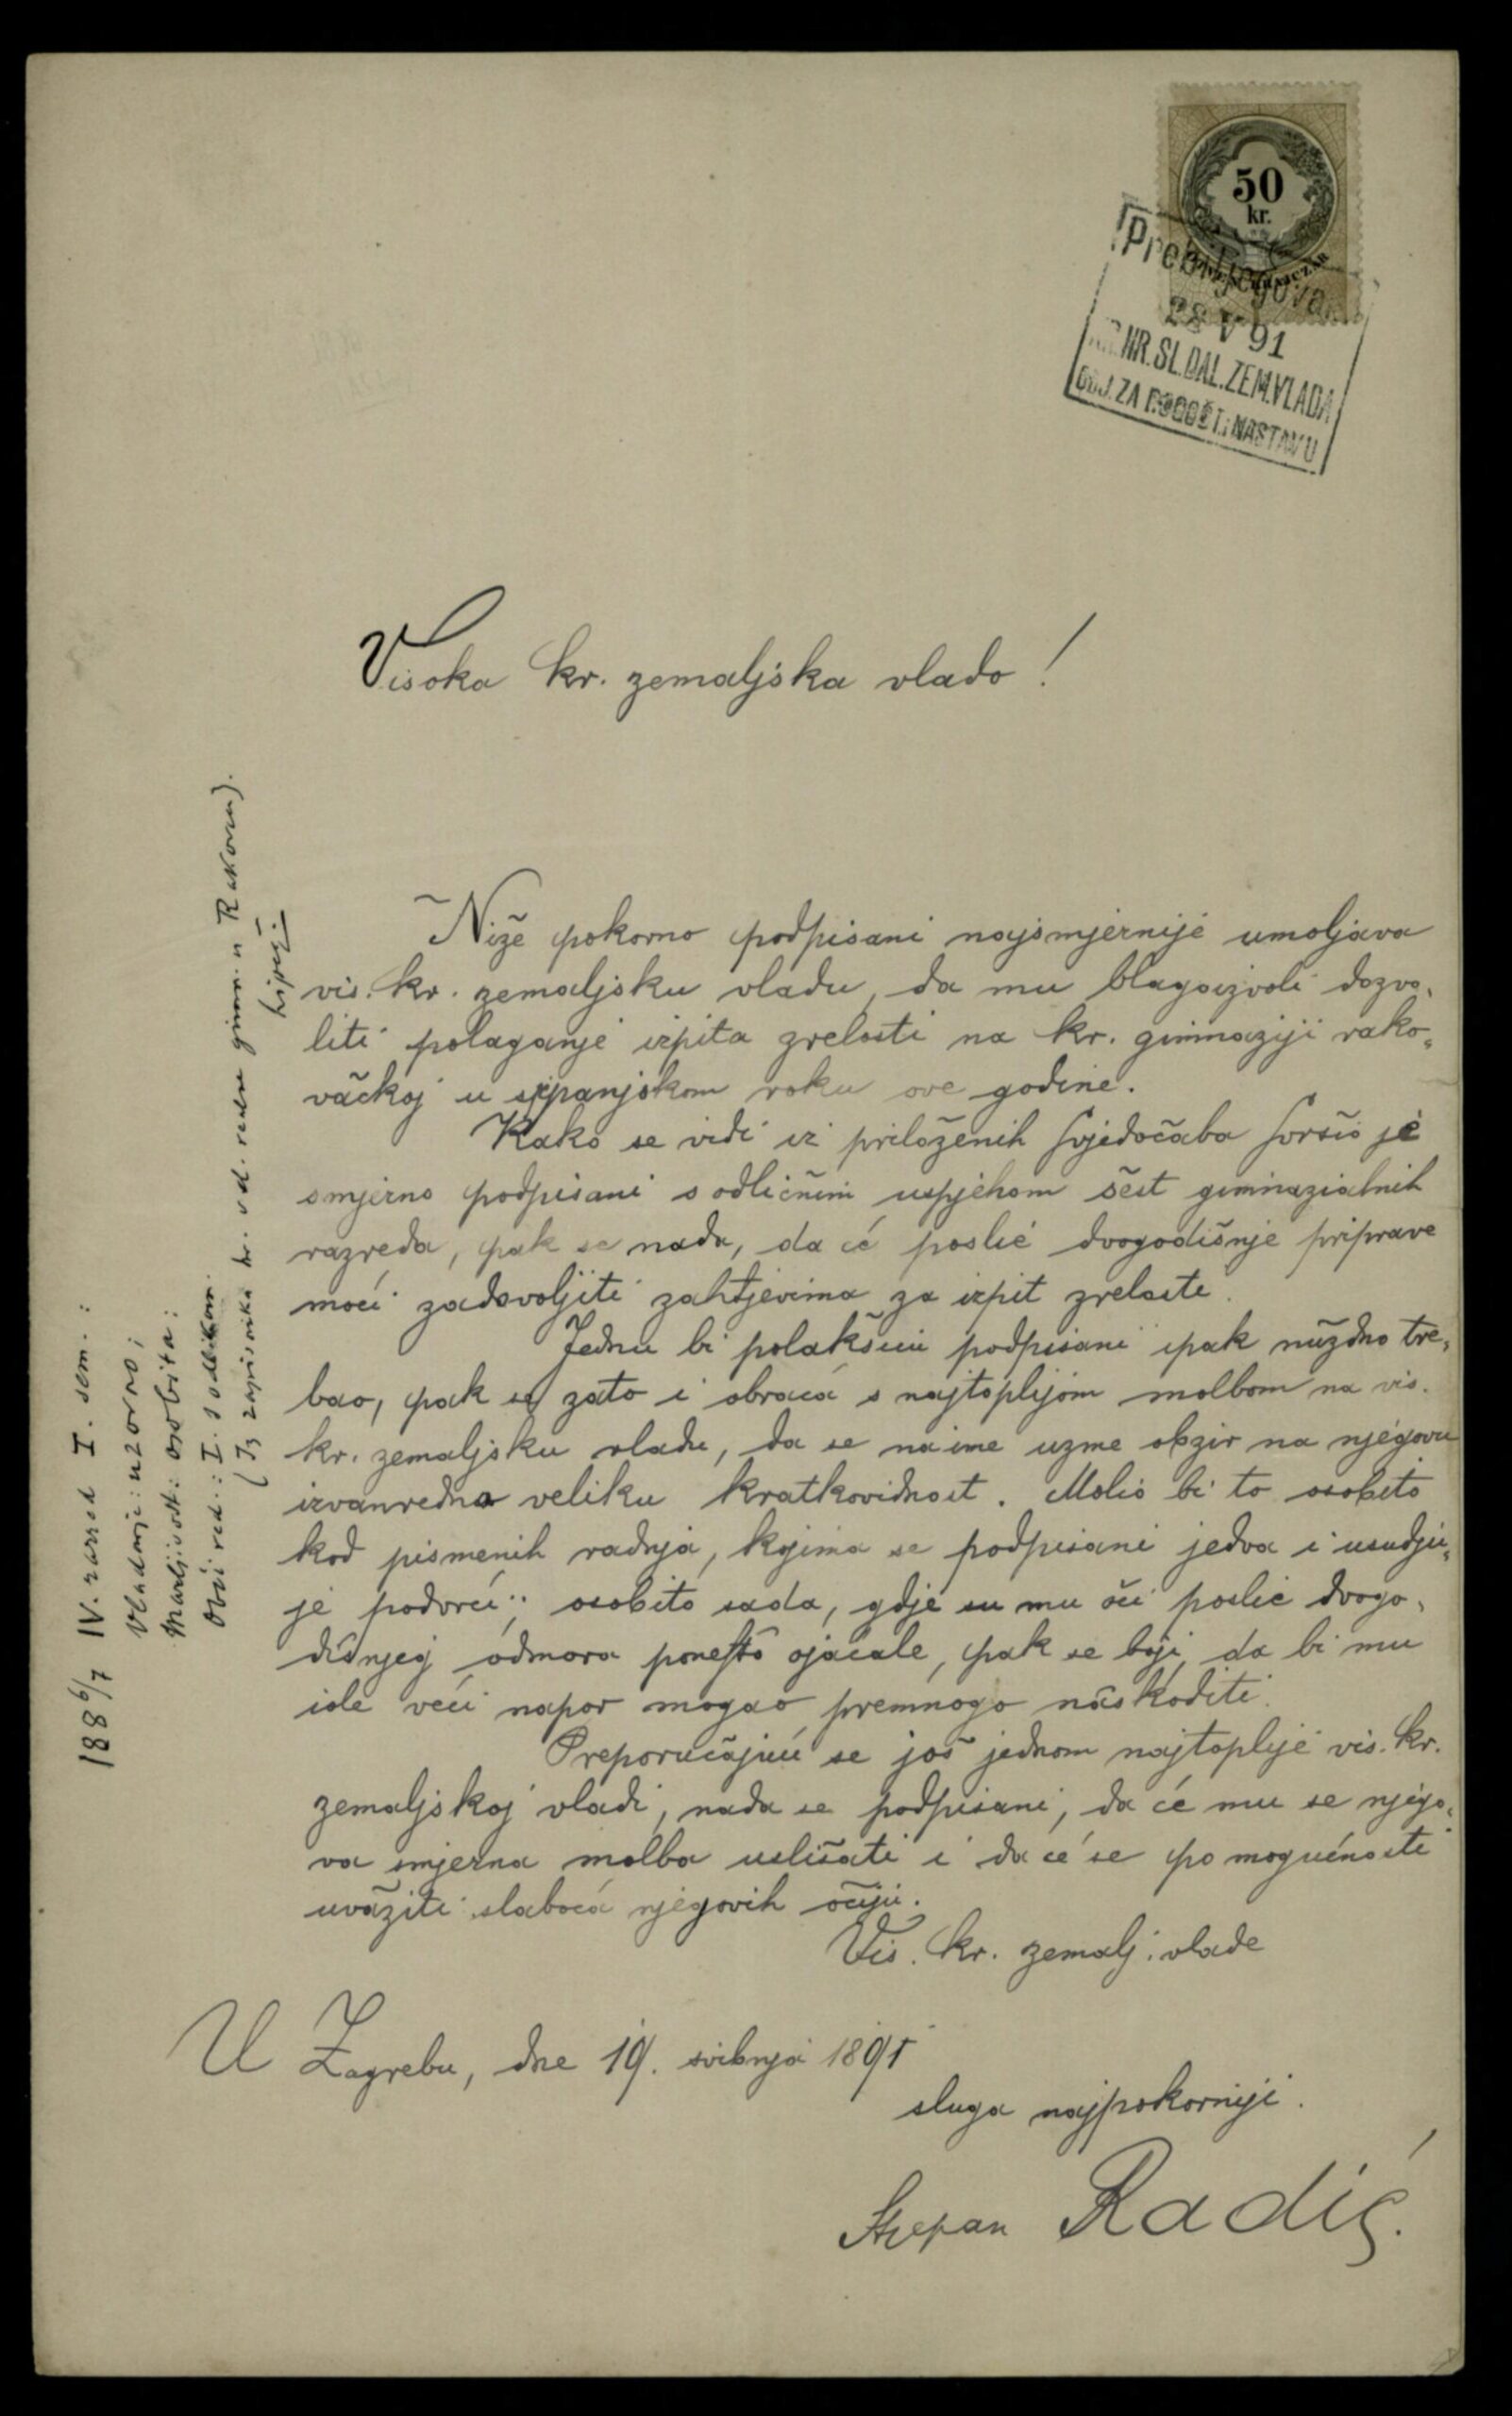 50
kr.
Prebilježova
28 V 91
HR.SL.DAL.ZEM.VLADA
ODJ. ZA BOGOŠT. i NASTAVU
Visoka kr. zemaljska vlado!
Niže pokorno podpisani najsmjernije umoljava
vis. kr. zemaljsku vladu, da mu blagoizvoli dozvo-
liti polaganje izpita zrelosti na kr. gimnaziji rako-
vačkoj u srpanjskom roku ove godine.
Kako se vidi iz priloženih svjedočaba svršio je
smjerno podpisani s odličnim uspjehom šest gimnazialnih
razreda, pak se nada, da će poslie dvogodišnje priprave
moći zadovoljiti zahtjevima za izpit zrelosti.
Jednu bi polakšicu podpisani ipak nuždno tre-
bao, pak se zato i obraća s najtoplijom molbom na vis.
kr. zemaljsku vladu, da se naime uzme obzir na njegovu
izvanredno veliku kratkovidnost. Molio bi to osobito
kod pismenih radnja, kojima se podpisani jedva i usudju-
je podvrći; osobito sada, gdje su mu oči poslie dvogo-
dišnjeg odmora ponešto ojačale, pak se boji, da bi mu
iole veći napor mogao premnogo naškoditi.
Preporučajući se još jednom najtoplije vis. kr.
zemaljskoj vladi, nada se podpisani, da će mu se njego-
va smjerna molba uslišati i da će se po mogućnosti
uvažiti slaboća njegovih očiju.
Vis. kr. zemalj. vlade
U Zagrebu, dne 19. svibnja 1891
sluga najpokorniji.
Stjepan Radić.
188 6/7 IV. razred I. sem.:
Vladanje: uzorno;
Marljivost: osobita;
Obći red: I. s odlikom.
(Iz zapisnika kr. vel. realne gimn. u Rakovcu).